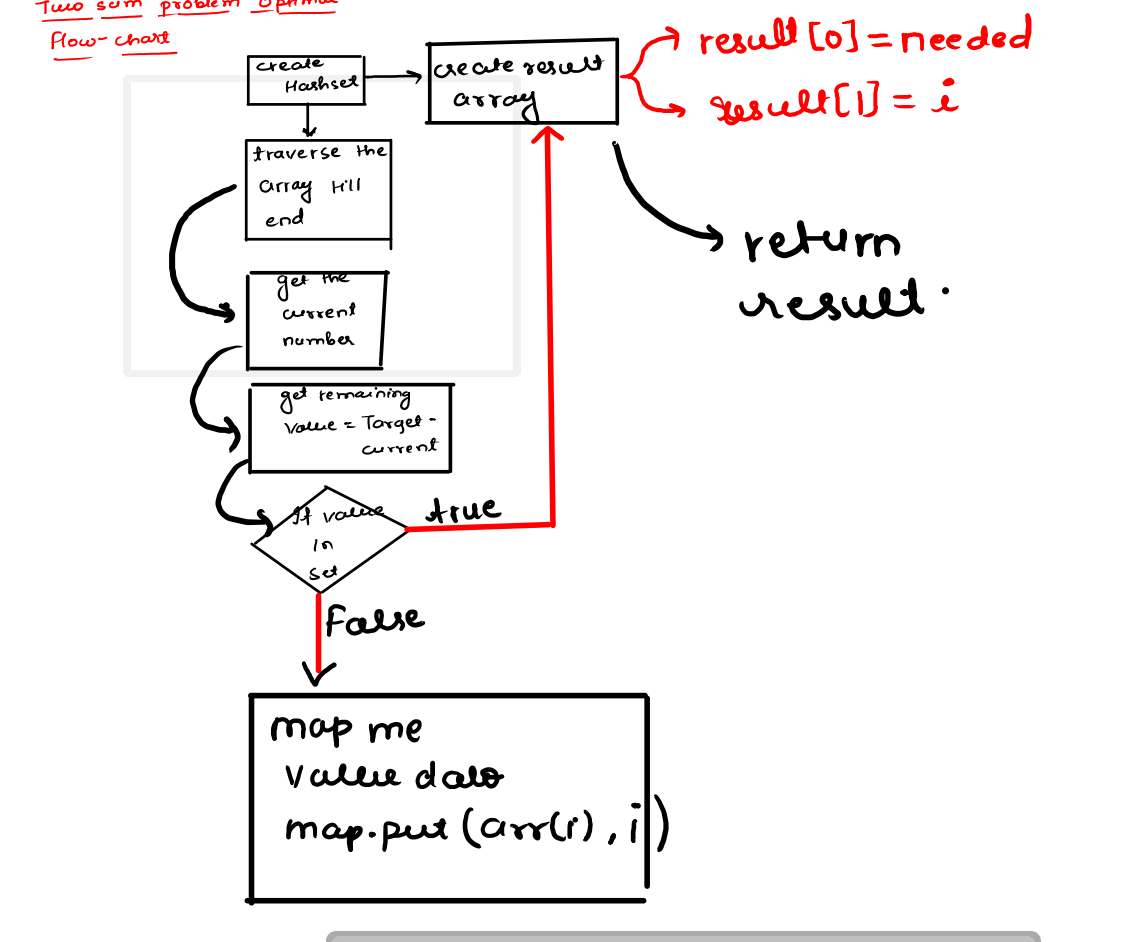 Two sum problem optimal
Flow-chart
create
Hashset
create result
array
result[0]=needed
result[1] = i
traverse the
array till
end
return
result.
get the
current
number
get remaining
value = Target -
current
If value
in
set
true
False
map me
value dalo
map.put(arr(i), i)